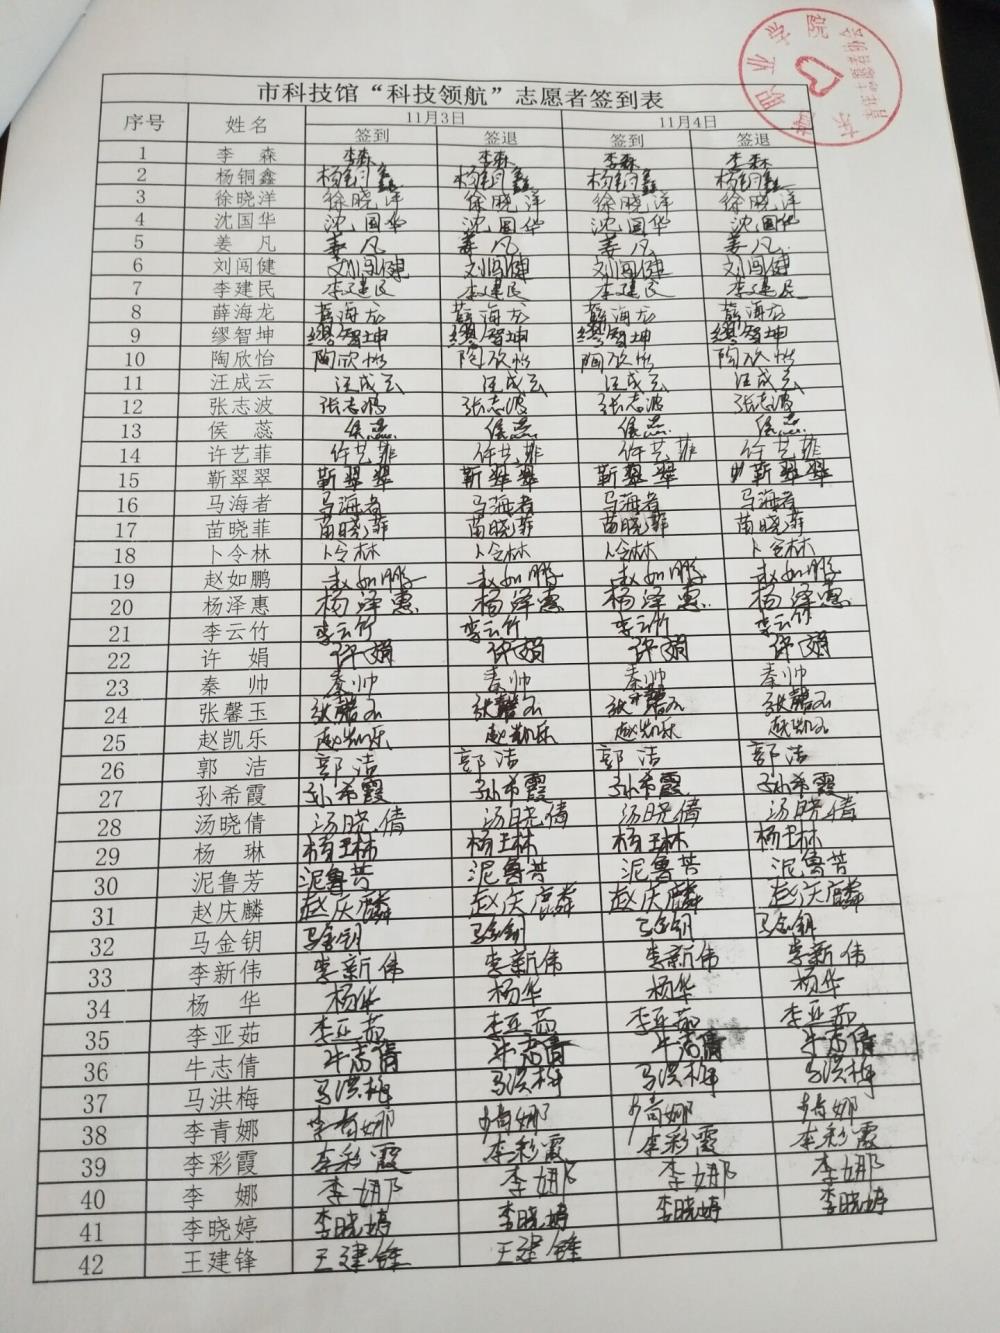 市科技馆“科技领航”志愿者签到表
序号 姓名 11月3日 11月4日
签到 签退 签到 签退
1 李森 李森 李森 李森 李森
2 杨铜鑫 杨铜鑫 杨铜鑫 杨铜鑫 杨铜鑫
3 徐晓洋 徐晓洋 徐晓洋 徐晓洋 徐晓洋
4 沈国华 沈国华 沈国华 沈国华 沈国华
5 姜凡 姜凡 姜凡 姜凡 姜凡
6 刘闯健 刘闯健 刘闯健 刘闯健 刘闯健
7 李建民 李建民 李建民 李建民 李建民
8 薛海龙 薛海龙 薛海龙 薛海龙 薛海龙
9 缪智坤 缪智坤 缪智坤 缪智坤 缪智坤
10 陶欣怡 陶欣怡 陶欣怡 陶欣怡 陶欣怡
11 汪成云 汪成云 汪成云 汪成云 汪成云
12 张志波 张志波 张志波 张志波 张志波
13 侯蕊 侯蕊 侯蕊 侯蕊 侯蕊
14 许艺菲 许艺菲 许艺菲 许艺菲 许艺菲
15 靳翠翠 靳翠翠 靳翠翠 靳翠翠 靳翠翠
16 马海者 马海者 马海者 马海者 马海者
17 苗晓菲 苗晓菲 苗晓菲 苗晓菲 苗晓菲
18 卜令林 卜令林 卜令林 卜令林 卜令林
19 赵如鹏 赵如鹏 赵如鹏 赵如鹏 赵如鹏
20 杨泽惠 杨泽惠 杨泽惠 杨泽惠 杨泽惠
21 李云竹 李云竹 李云竹 李云竹 李云竹
22 许娟 许娟 许娟 许娟 许娟
23 秦帅 秦帅 秦帅 秦帅 秦帅
24 张馨玉 张馨玉 张馨玉 张馨玉 张馨玉
25 赵凯乐 赵凯乐 赵凯乐 赵凯乐 赵凯乐
26 郭洁 郭洁 郭洁 郭洁 郭洁
27 孙希霞 孙希霞 孙希霞 孙希霞 孙希霞
28 汤晓倩 汤晓倩 汤晓倩 汤晓倩 汤晓倩
29 杨琳 杨琳 杨琳 杨琳 杨琳
30 泥鲁芳 泥鲁芳 泥鲁芳 泥鲁芳 泥鲁芳
31 赵庆麟 赵庆麟 赵庆麟 赵庆麟 赵庆麟
32 马金钥 马金钥 马金钥 马金钥 马金钥
33 李新伟 李新伟 李新伟 李新伟 李新伟
34 杨华 杨华 杨华 杨华 杨华
35 李亚茹 李亚茹 李亚茹 李亚茹 李亚茹
36 牛志倩 牛志倩 牛志倩 牛志倩 牛志倩
37 马洪梅 马洪梅 马洪梅 马洪梅 马洪梅
38 李青娜 李青娜 李青娜 李青娜 李青娜
39 李彩霞 李彩霞 李彩霞 李彩霞 李彩霞
40 李娜 李娜 李娜 李娜 李娜
41 李晓婷 李晓婷 李晓婷 李晓婷 李晓婷
42 王建锋 王建锋 王建锋
职业学院